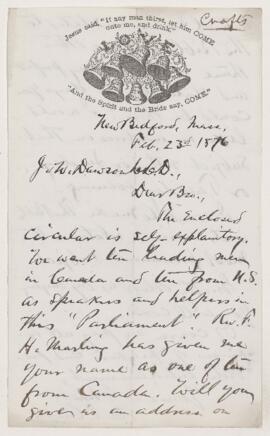 Crafts
Jesus said, "If any man thirst, let him COME
unto me, and drink."
LOVE
"And the Spirit and the Bride say, COME."
New Bedford, Mass,
Feb. 23rd 1876
J. W. Dawson LL.D.,
Dear Bro.,
The Enclosed
circular is self-explanitory.
We want ten leading men
in Canada and ten from U.S.
as speakers and helpers in
this "Parliament". Rev. F.
H. Marling has given me
your name as one of ten
from Canada. Will you
give us an address on